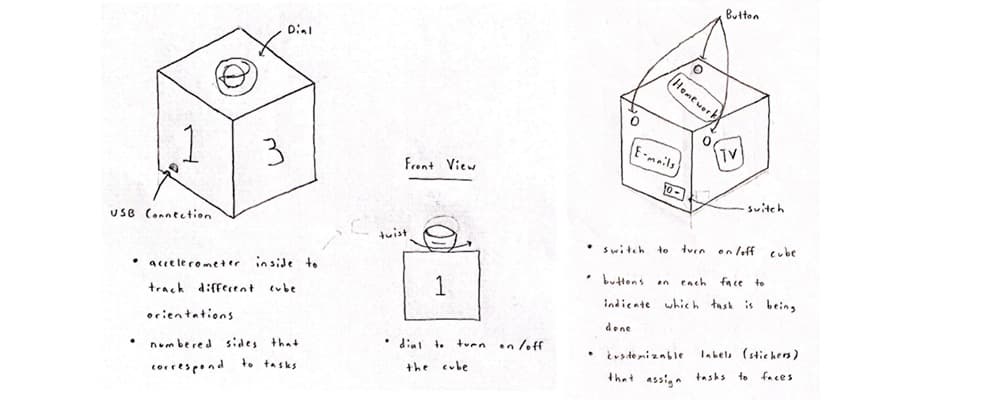 Dial
1
3
USB Connection
• accelerometer inside to
track different cube
orientations
• numbered sides that
correspond to tasks
Front View
twist
1
• dial to turn on/off
the cube
Button
Homework
E-mails
TV
switch
• switch to turn on/off cube
• buttons on each face to
indicate which task is being
done
• customizable labels (stickers)
that assign tasks to faces